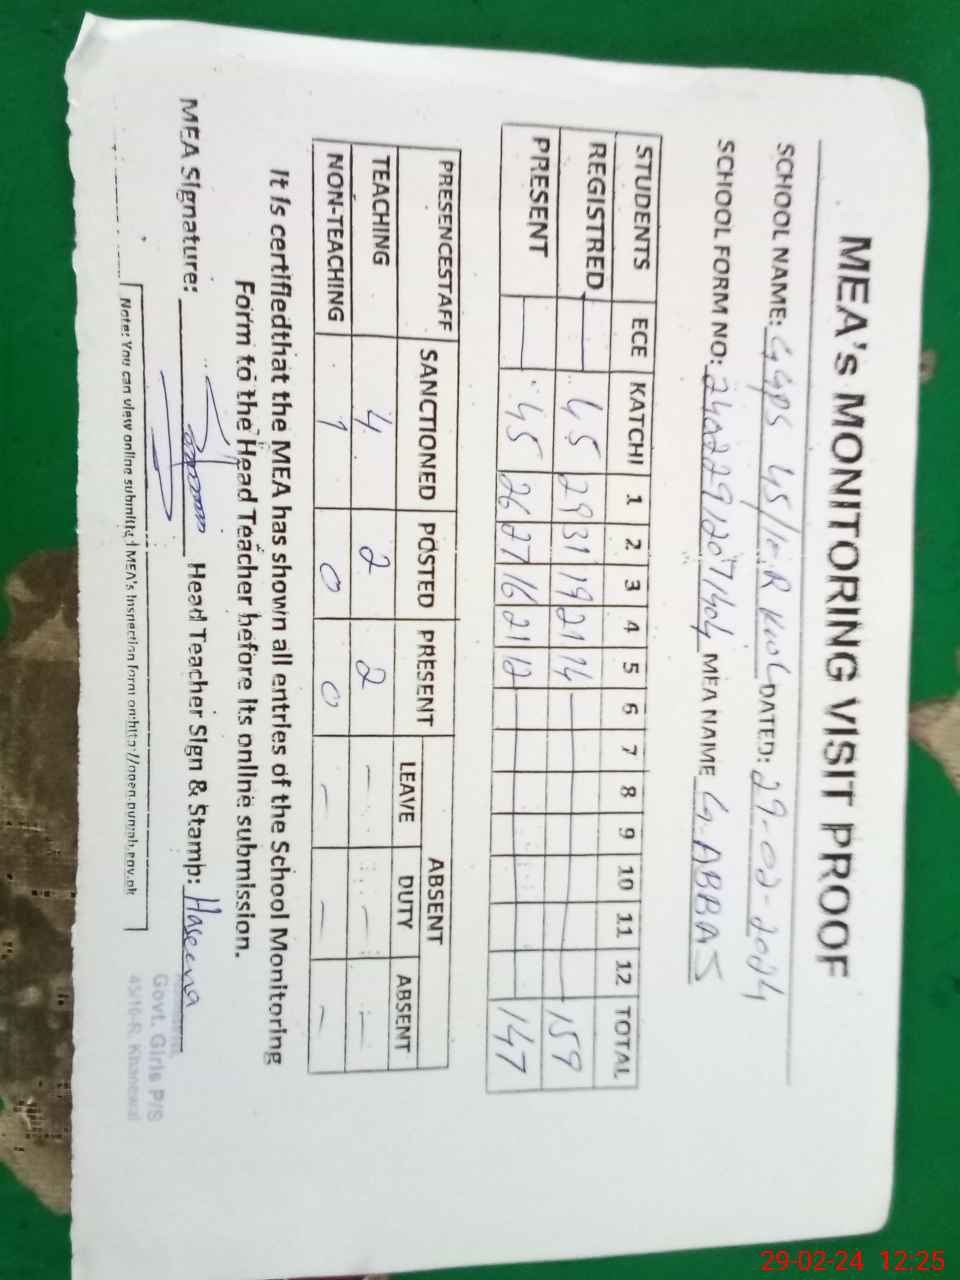 MEA's MONITORING VISIT PROOF
SCHOOL NAME: GGPS 45/10R KWL DATED: 29-02-2024
SCHOOL FORM NO: MEA NAME G.ABBAS
STUDENTS ECE KATCHI 1 2 3 4 5 6 7 8 9 10 11 12 TOTAL
REGISTRED — 45 29 31 19 21 14 — 159
PRESENT — 45 26 27 16 21 12 — 147
PRESENCESTAFF SANCTIONED POSTED PRESENT ABSENT
LEAVE DUTY ABSENT
TEACHING 4 2 2 — — —
NON-TEACHING 1 0 0 — — —
It is certifiedthat the MEA has shown all entries of the School Monitoring
Form to the Head Teacher before its online submission.
MEA Signature: Head Teacher Sign & Stamp: Haseena
Govt. Girls P/S
45/10-R, Khanewal
Note: You can view online submitted MEA's Inspection form on:http://open.punjab.gov.pk
29-02-24 12:25